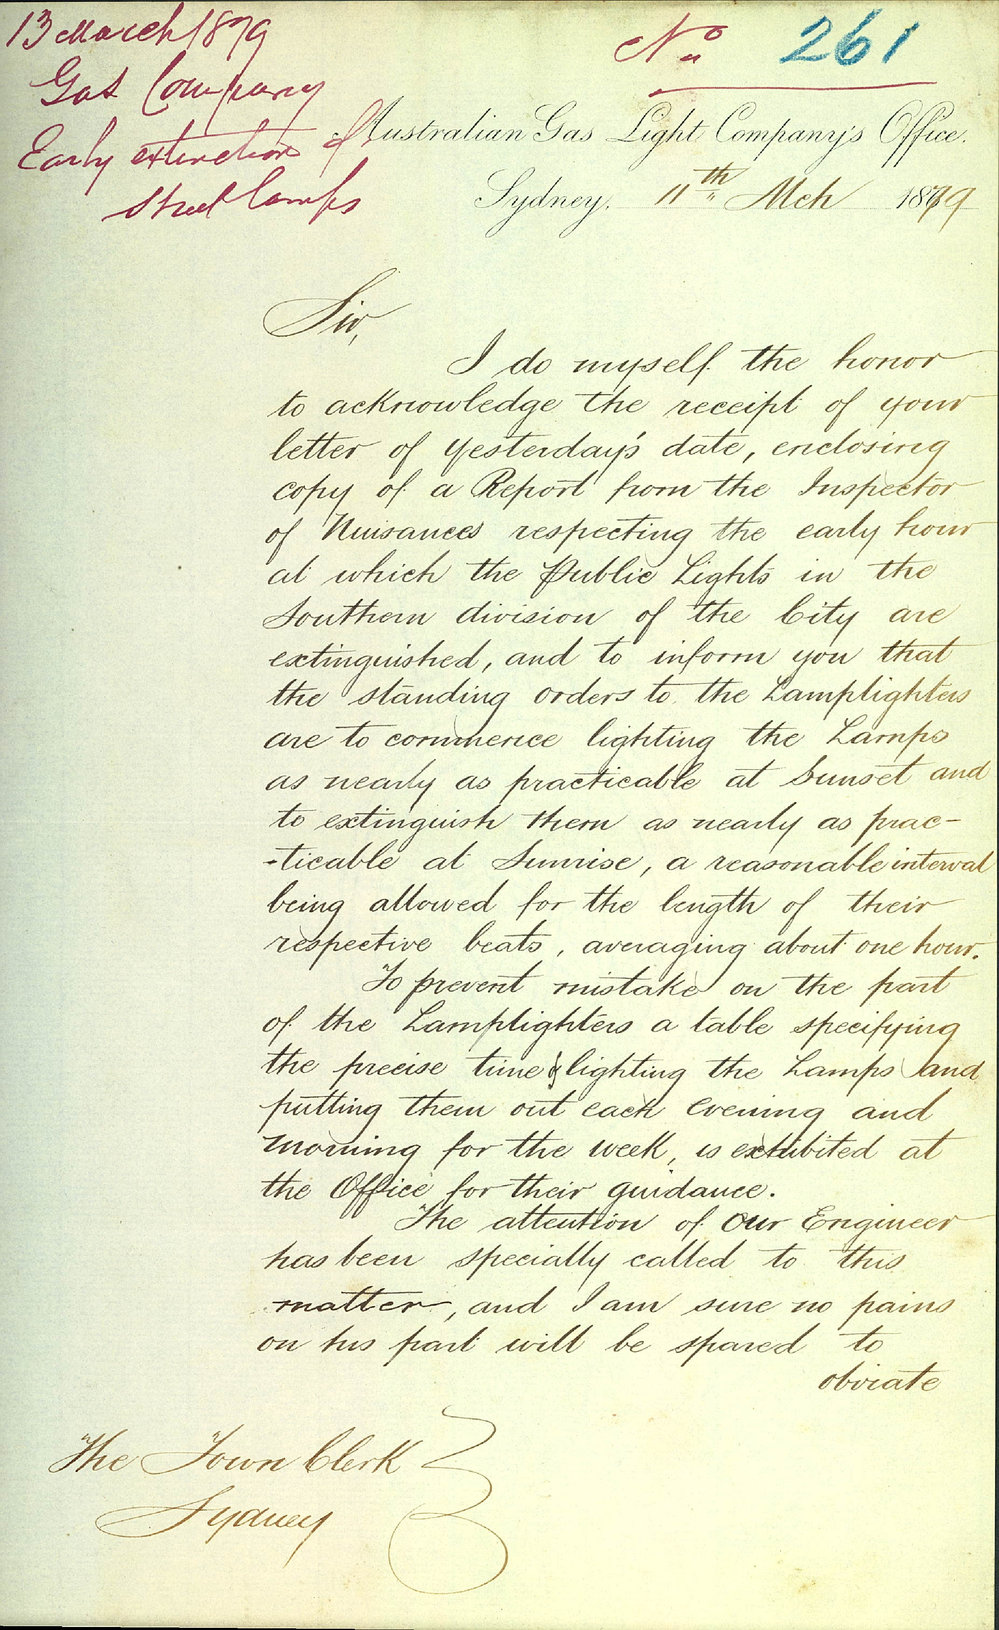 13 March 1879
Gas Company
Early extinction of
Street Lamps
No 261
Australian Gas Light Company's Office.
Sydney. 11th Mch 1879
Sir,
I do myself the honor
to acknowledge the receipt of your
letter of yesterday's date, enclosing
copy of a Report from the Inspector
of Nuisances respecting the early hour
at which the Public Lights in the
Southern division of the City are
extinguished, and to inform you that
the standing orders to the Lamplighters
are to commence lighting the Lamps
as nearly as practicable at Sunset and
to extinguish them as nearly as prac-
-ticable at Sunrise, a reasonable interval
being allowed for the length of their
respective beats, averaging about one hour.
To prevent mistake on the part
of the Lamplighters a table specifying
the precise time of lighting the Lamps and
putting them out each evening and
morning for the week, is exhibited at
the Office for their guidance.
The attention of our Engineer
has been specially called to this
matter, and I am sure no pains
on his part will be spared to
obviate
The Town Clerk
Sydney